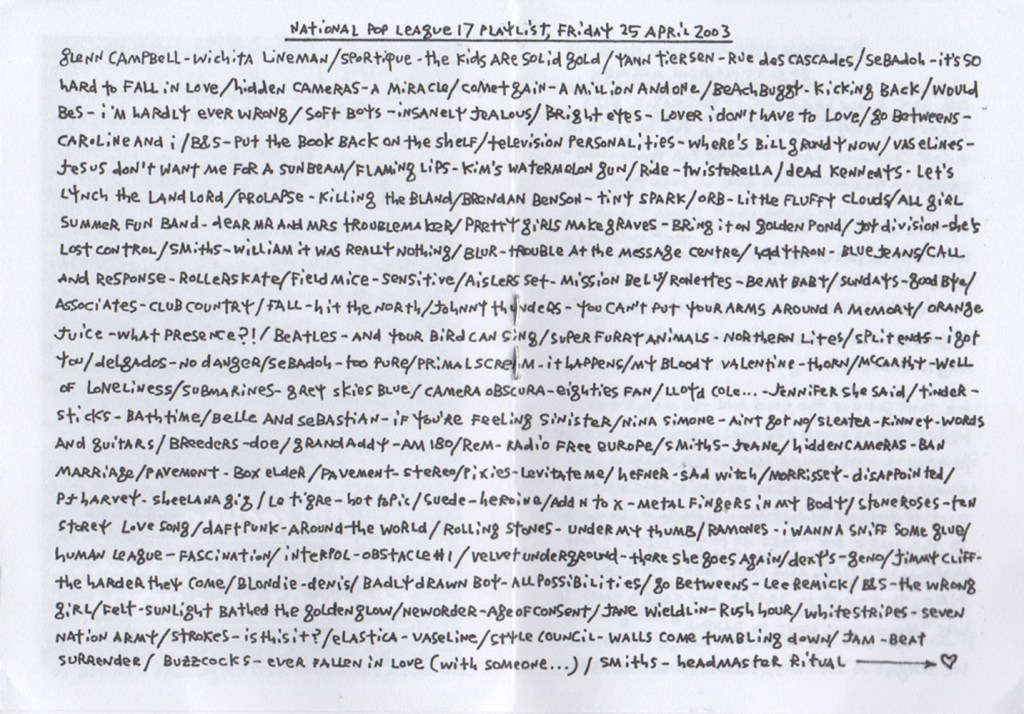 NATIONAL POP LEAGUE 17 PLAYLIST, FRIDAY 25 APRIL 2003
GLENN CAMPBELL - WICHITA LINEMAN / SPORTIQUE - THE KIDS ARE SOLID GOLD / YANN TIERSEN - RUE DOS CASCADES / SEBADOH - IT'S SO
HARD TO FALL IN LOVE / HIDDEN CAMERAS - A MIRACLE / COMET GAIN - A MILLION AND ONE / BEACHBUGGY - KICKING BACK / WOULD
BES - I'M HARDLY EVER WRONG / SOFT BOYS - INSANELY JEALOUS / BRIGHT EYES - LOVER I DON'T HAVE TO LOVE / GO BETWEENS -
CAROLINE AND I / B&S - PUT THE BOOK BACK ON THE SHELF / TELEVISION PERSONALITIES - WHERE'S BILL GRUNDY NOW / VASELINES -
JESUS DON'T WANT ME FOR A SUNBEAM / FLAMING LIPS - KIM'S WATERMELON GUN / RIDE - TWISTERELLA / DEAD KENNEDYS - LET'S
LYNCH THE LANDLORD / PROLAPSE - KILLING THE BLAND / BRENDAN BENSON - TINY SPARK / ORB - LITTLE FLUFFY CLOUDS / ALL GIRL
SUMMER FUN BAND - DEAR MR AND MRS TROUBLEMAKER / PRETTY GIRLS MAKE GRAVES - BRING IT ON GOLDEN POND / JOY DIVISION - SHE'S
LOST CONTROL / SMITHS - WILLIAM IT WAS REALLY NOTHING / BLUR - TROUBLE AT THE MESSAGE CENTRE / LADYTRON - BLUE JEANS / CALL
AND RESPONSE - ROLLERSKATE / FIELD MICE - SENSITIVE / AISLERS SET - MISSION BELLS / RONETTES - BE MY BABY / SUNDAYS - GOODBYE /
ASSOCIATES - CLUB COUNTRY / FALL - HIT THE NORTH / JOHNNY THUNDERS - YOU CAN'T PUT YOUR ARMS AROUND A MEMORY / ORANGE
JUICE - WHAT PRESENCE?! / BEATLES - AND YOUR BIRD CAN SING / SUPER FURRY ANIMALS - NORTHERN LITES / SPLIT ENDS - I GOT
YOU / DELGADOS - NO DANGER / SEBADOH - TOO PURE / PRIMAL SCREAM - IT HAPPENS / MY BLOODY VALENTINE - THORN / MCCARTHY - WELL
OF LONELINESS / SUBMARINES - GREY SKIES BLUE / CAMERA OBSCURA - EIGHTIES FAN / LLOYD COLE... - JENNIFER SHE SAID / TINDER-
STICKS - BATHTIME / BELLE AND SEBASTIAN - IF YOU'RE FEELING SINISTER / NINA SIMONE - AIN'T GOT NO / SLEATER-KINNEY - WORDS
AND GUITARS / BREEDERS - DOE / GRANDADDY - AM 180 / REM - RADIO FREE EUROPE / SMITHS - JEANE / HIDDEN CAMERAS - BAN
MARRIAGE / PAVEMENT - BOX ELDER / PAVEMENT - STEREO / PIXIES - LEVITATE ME / HEFNER - SAD WITCH / MORRISSEY - DISAPPOINTED /
PJ HARVEY - SHEELA NA GIG / LE TIGRE - HOT TOPIC / SUEDE - HEROINE / ADD N TO X - METAL FINGERS IN MY BODY / STONE ROSES - TEN
STOREY LOVE SONG / DAFT PUNK - AROUND THE WORLD / ROLLING STONES - UNDER MY THUMB / RAMONES - I WANNA SNIFF SOME GLUE /
HUMAN LEAGUE - FASCINATION / INTERPOL - OBSTACLE #1 / VELVET UNDERGROUND - THERE SHE GOES AGAIN / DEXY'S - GENO / JIMMY CLIFF -
THE HARDER THEY COME / BLONDIE - DENIS / BADLY DRAWN BOY - ALL POSSIBILITIES / GO BETWEENS - LEE REMICK / B&S - THE WRONG
GIRL / FELT - SUNLIGHT BATHED THE GOLDEN GLOW / NEW ORDER - AGE OF CONSENT / JANE WIELDLIN - RUSH HOUR / WHITE STRIPES - SEVEN
NATION ARMY / STROKES - IS THIS IT? / ELASTICA - VASELINE / STYLE COUNCIL - WALLS COME TUMBLING DOWN / JAM - BEAT
SURRENDER / BUZZCOCKS - EVER FALLEN IN LOVE (WITH SOMEONE...) / SMITHS - HEADMASTER RITUAL ⟶ ♡